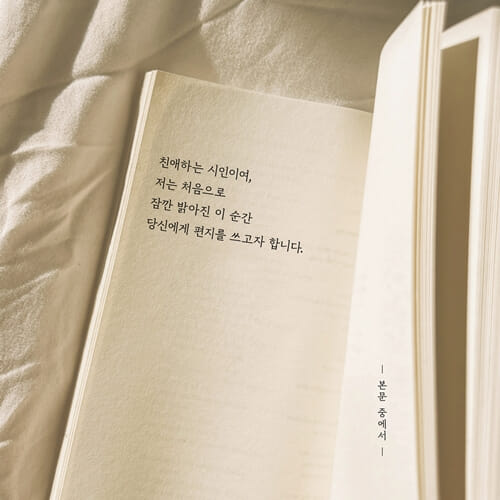 친애하는 시인이여,
저는 처음으로
잠깐 밝아진 이 순간
당신에게 편지를 쓰고자 합니다.
— 본문 중에서 —